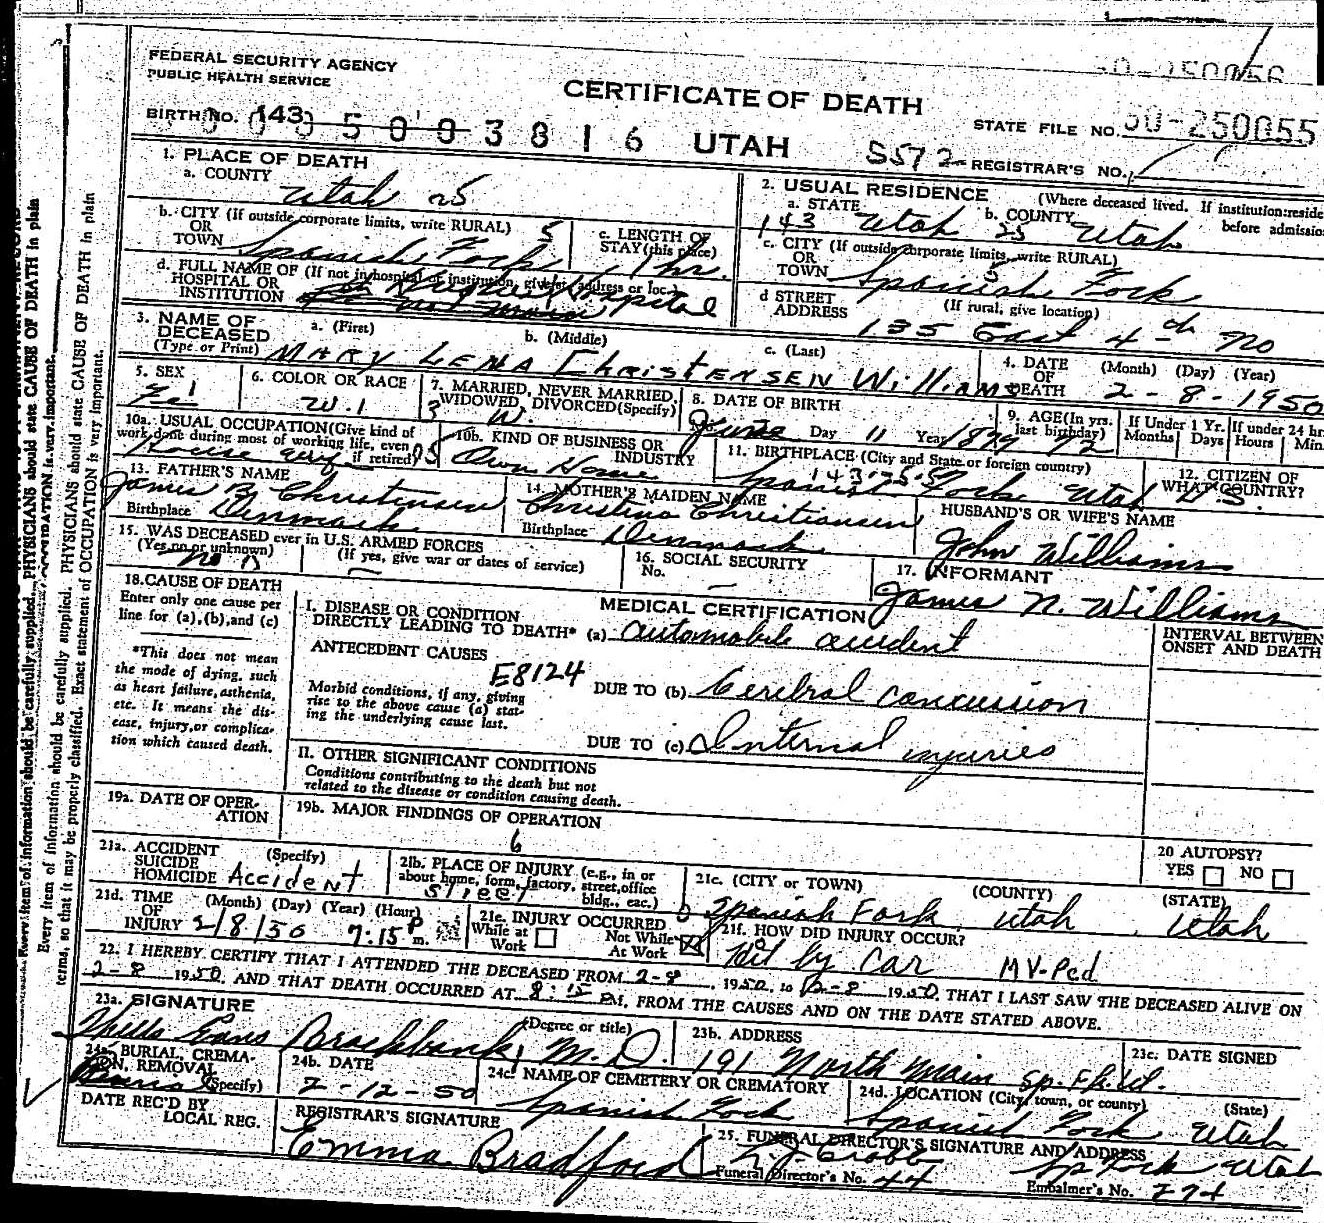 FEDERAL SECURITY AGENCY
PUBLIC HEALTH SERVICE
CERTIFICATE OF DEATH
BIRTH NO. 143
STATE FILE NO. 50-250055
0005003816 UTAH 5572 REGISTRAR'S NO.
1. PLACE OF DEATH
a. COUNTY
Utah 25
2. USUAL RESIDENCE (Where deceased lived. If institution: reside
a. STATE b. COUNTY before admissio
143 Utah 25 Utah
b. CITY (If outside corporate limits, write RURAL) 5
OR
TOWN Spanish Fork
c. LENGTH OF
STAY (this place)
1 hr.
c. CITY (If outside corporate limits, write RURAL)
OR
TOWN Spanish Fork
d. FULL NAME OF (If not in hospital or institution, give st. address or loc.)
HOSPITAL OR
INSTITUTION Hospital
d STREET (If rural, give location)
ADDRESS 135 East 4th No
3. NAME OF
DECEASED
(Type or Print)
a. (First) b. (Middle) c. (Last)
MARY LENA Christensen Williams
4. DATE (Month) (Day) (Year)
OF
DEATH 2-8-1950
5. SEX
Fe 1
6. COLOR OR RACE
W. 1
7. MARRIED, NEVER MARRIED,
WIDOWED, DIVORCED (Specify)
3 W.
8. DATE OF BIRTH
June Day 11 Year 1879
9. AGE (In yrs.
last birthday)
72
If Under 1 Yr. If under 24 hr
Months Days Hours Min.
10a. USUAL OCCUPATION (Give kind of
work done during most of working life, even
if retired)
House wife
10b. KIND OF BUSINESS OR
INDUSTRY
Own Home
11. BIRTHPLACE (City and State or foreign country)
Spanish Fork Utah
12. CITIZEN OF
WHAT COUNTRY?
U.S.
13. FATHER'S NAME
James Christensen
Birthplace Denmark
14. MOTHER'S MAIDEN NAME
Christina Christiansen
Birthplace Denmark
HUSBAND'S OR WIFE'S NAME
John Williams
15. WAS DECEASED ever in U.S. ARMED FORCES
(Yes no or unknown) (If yes, give war or dates of service)
no
16. SOCIAL SECURITY
No. —
17. INFORMANT
James N. Williams
18. CAUSE OF DEATH
Enter only one cause per
line for (a), (b), and (c)
*This does not mean
the mode of dying, such
as heart failure, asthenia,
etc. It means the dis-
ease, injury, or complica-
tion which caused death.
MEDICAL CERTIFICATION
I. DISEASE OR CONDITION
DIRECTLY LEADING TO DEATH* (a) automobile accident
ANTECEDENT CAUSES
E8124
Morbid conditions, if any, giving
rise to the above cause (a) stat-
ing the underlying cause last.
DUE TO (b) Cerebral concussion
DUE TO (c) Internal injuries
INTERVAL BETWEEN
ONSET AND DEATH
II. OTHER SIGNIFICANT CONDITIONS
Conditions contributing to the death but not
related to the disease or condition causing death.
19a. DATE OF OPER-
ATION
19b. MAJOR FINDINGS OF OPERATION
6
20 AUTOPSY?
YES NO
21a. ACCIDENT (Specify)
SUICIDE
HOMICIDE Accident
21b. PLACE OF INJURY (e.g., in or
about home, farm, factory, street, office
bldg., etc.)
street
21c. (CITY or TOWN) (COUNTY) (STATE)
Spanish Fork Utah Utah
21d. TIME (Month) (Day) (Year) (Hour)
OF
INJURY 2/8/50 7:15 P m.
21e. INJURY OCCURRED
While at Not While
Work At Work
21f. HOW DID INJURY OCCUR?
Hit by Car MV-Ped
22. I HEREBY CERTIFY THAT I ATTENDED THE DECEASED FROM 2-8, 1950, to 2-8 1950, THAT I LAST SAW THE DECEASED ALIVE ON
2-8 1950, AND THAT DEATH OCCURRED AT 8:15 PM, FROM THE CAUSES AND ON THE DATE STATED ABOVE.
23a. SIGNATURE (Degree or title)
Evans M.D.
23b. ADDRESS
191 North Main Sp. Fk. Ut.
23c. DATE SIGNED
24a. BURIAL, CREMA-
TION, REMOVAL
(Specify)
Burial
24b. DATE
2-12-50
24c. NAME OF CEMETERY OR CREMATORY
Spanish Fork
24d. LOCATION (City, town, or county) (State)
Spanish Fork Utah
DATE REC'D BY
LOCAL REG.
REGISTRAR'S SIGNATURE
Emma Bradford
25. FUNERAL DIRECTOR'S SIGNATURE AND ADDRESS
Sp Fork Utah
Funeral Director's No. 44
Embalmer's No. 274
Every item of information should be carefully supplied. PHYSICIANS should state CAUSE OF DEATH in plain
terms, so that it may be properly classified. Exact statement of OCCUPATION is very important.